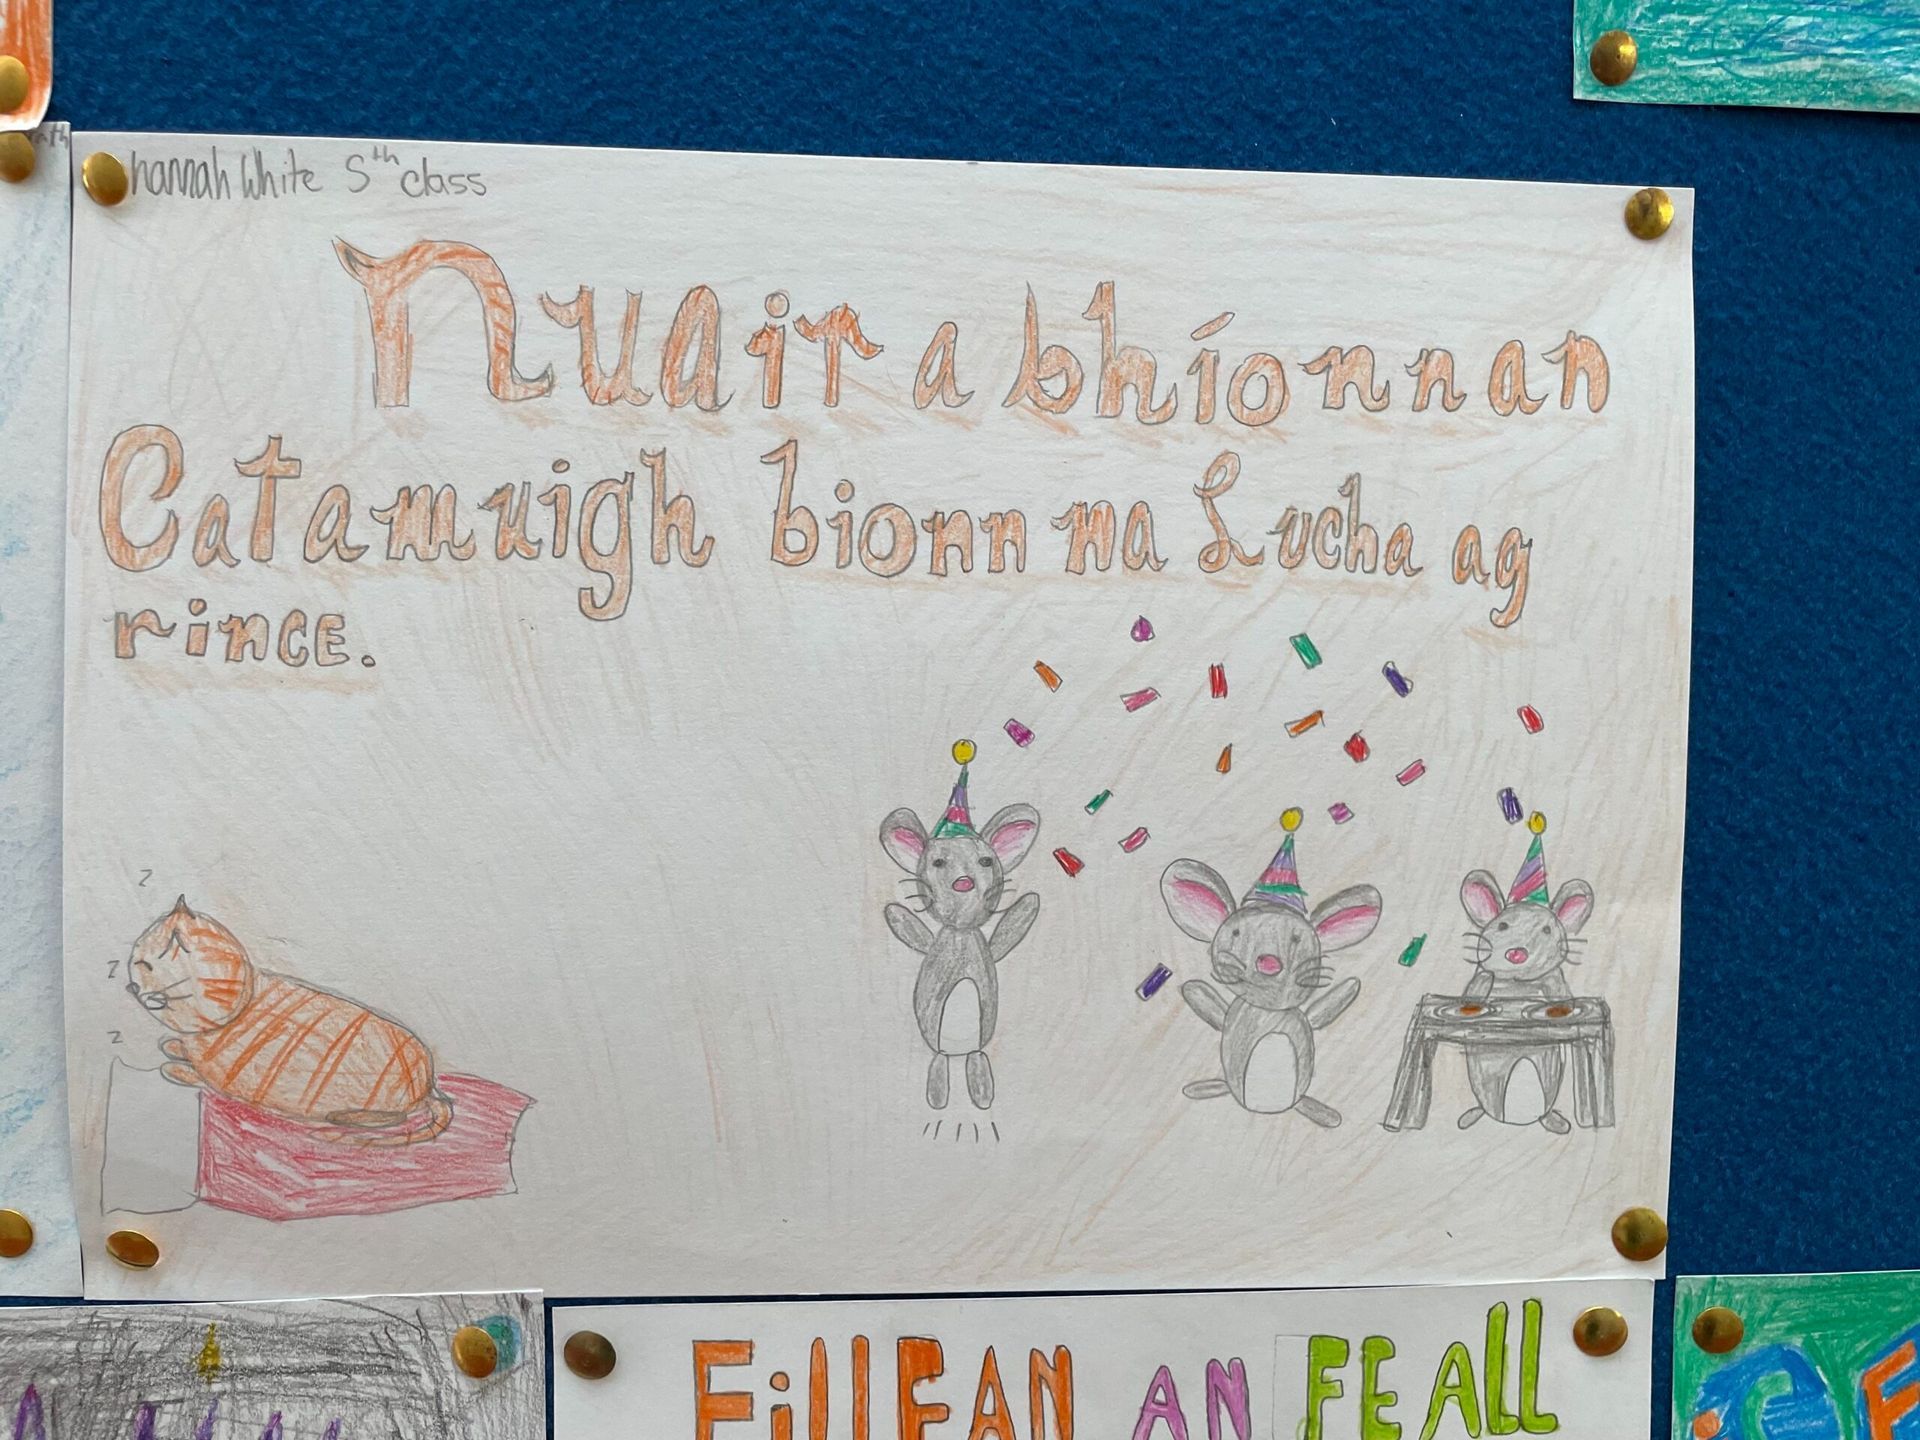 hannah White 5th class
Nuair a bhíonn an
Cat amuigh bionn na Lucha ag
rince.
z
z
z
Fillean an feall